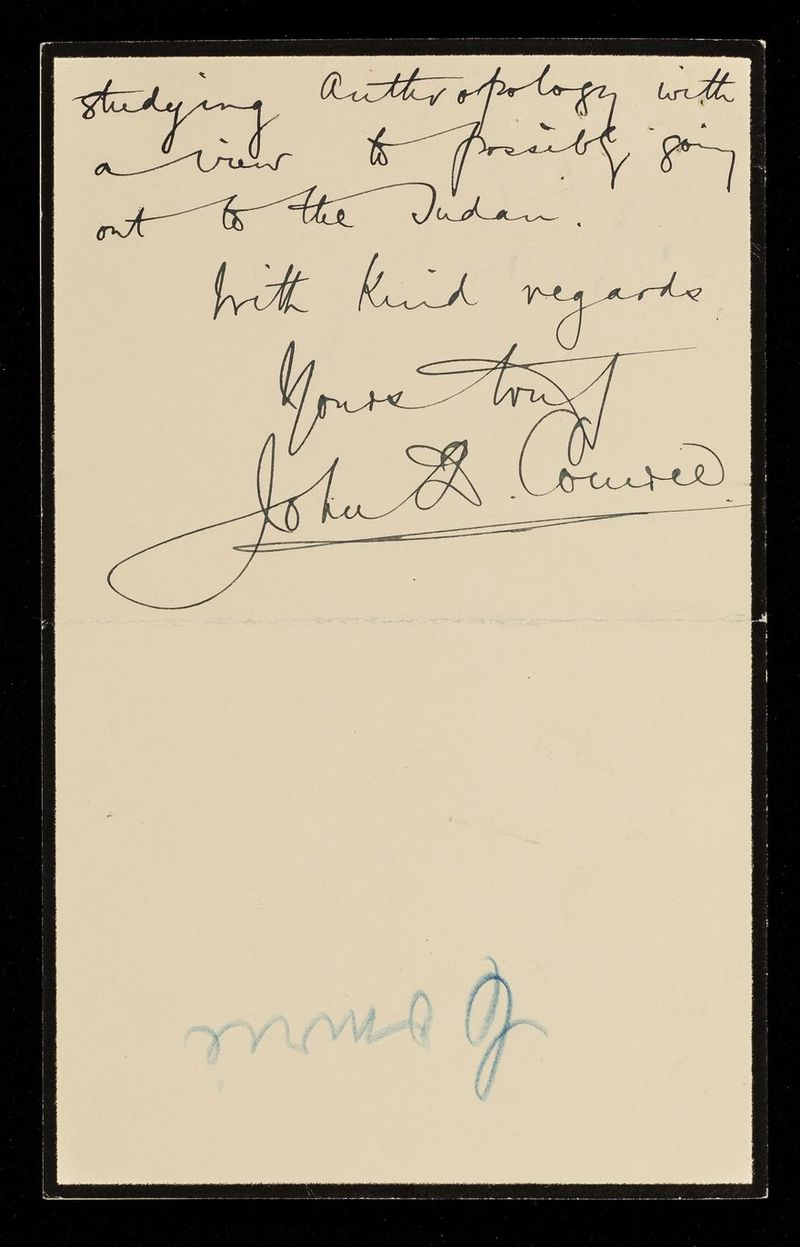 studying Anthropology with
a view to possibly going
out to the Sudan.
With kind regards
Yours truly
John D. Comrie.